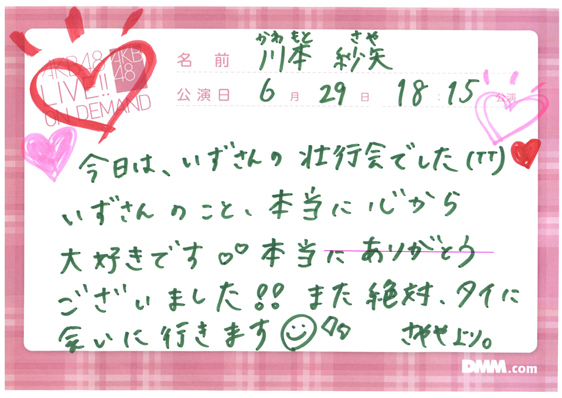 AKB48
LIVE!!
ON DEMAND
AKB
48
かわもと さや
名前 川本 紗矢
公演日 6月29日 18:15 公演
今日は、いずさんの 壮行会でした(TT)
いずさんのこと、本当に心から
大好きです♡♡ 本当に ありがとう
ございました!! また絶対、タイに
会いに行きます
さややより。
DMM.com